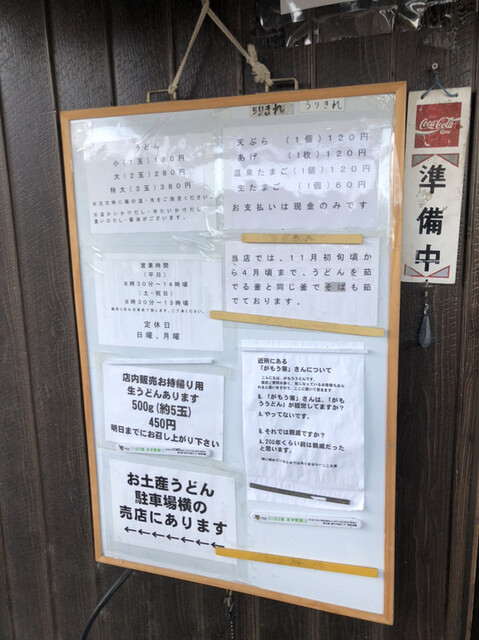 うりきれ
うりきれ
うどん
小(1玉)180円
大(2玉)280円
特大(3玉)380円
天ぷら (1個)120円
あげ (1枚)120円
温泉たまご(1個)120円
生たまご (1個)60円
お支払いは現金のみです
営業時間
(平日)
8時30分〜14時頃
(土・祝日)
8時30分〜13時頃
定休日
日曜、月曜
当店では、11月初旬頃か
ら4月頃まで、うどんを茹
でる釜と同じ釜でそばも茹
でております。
店内販売お持帰り用
生うどんあります
500g(約5玉)
450円
明日までにお召し上がり下さい
近所にある
「がもう家」さんについて
こんにちは、がもううどんです。
Q.「がもう家」さんは、「がも
ううどん」が経営してますか?
A.やってないです。
Q.それでは親戚ですか?
A.200年くらい前は親戚だった
と思います。
お土産うどん
駐車場横の
売店にあります
←←←←←←←
Coca-Cola
準備中